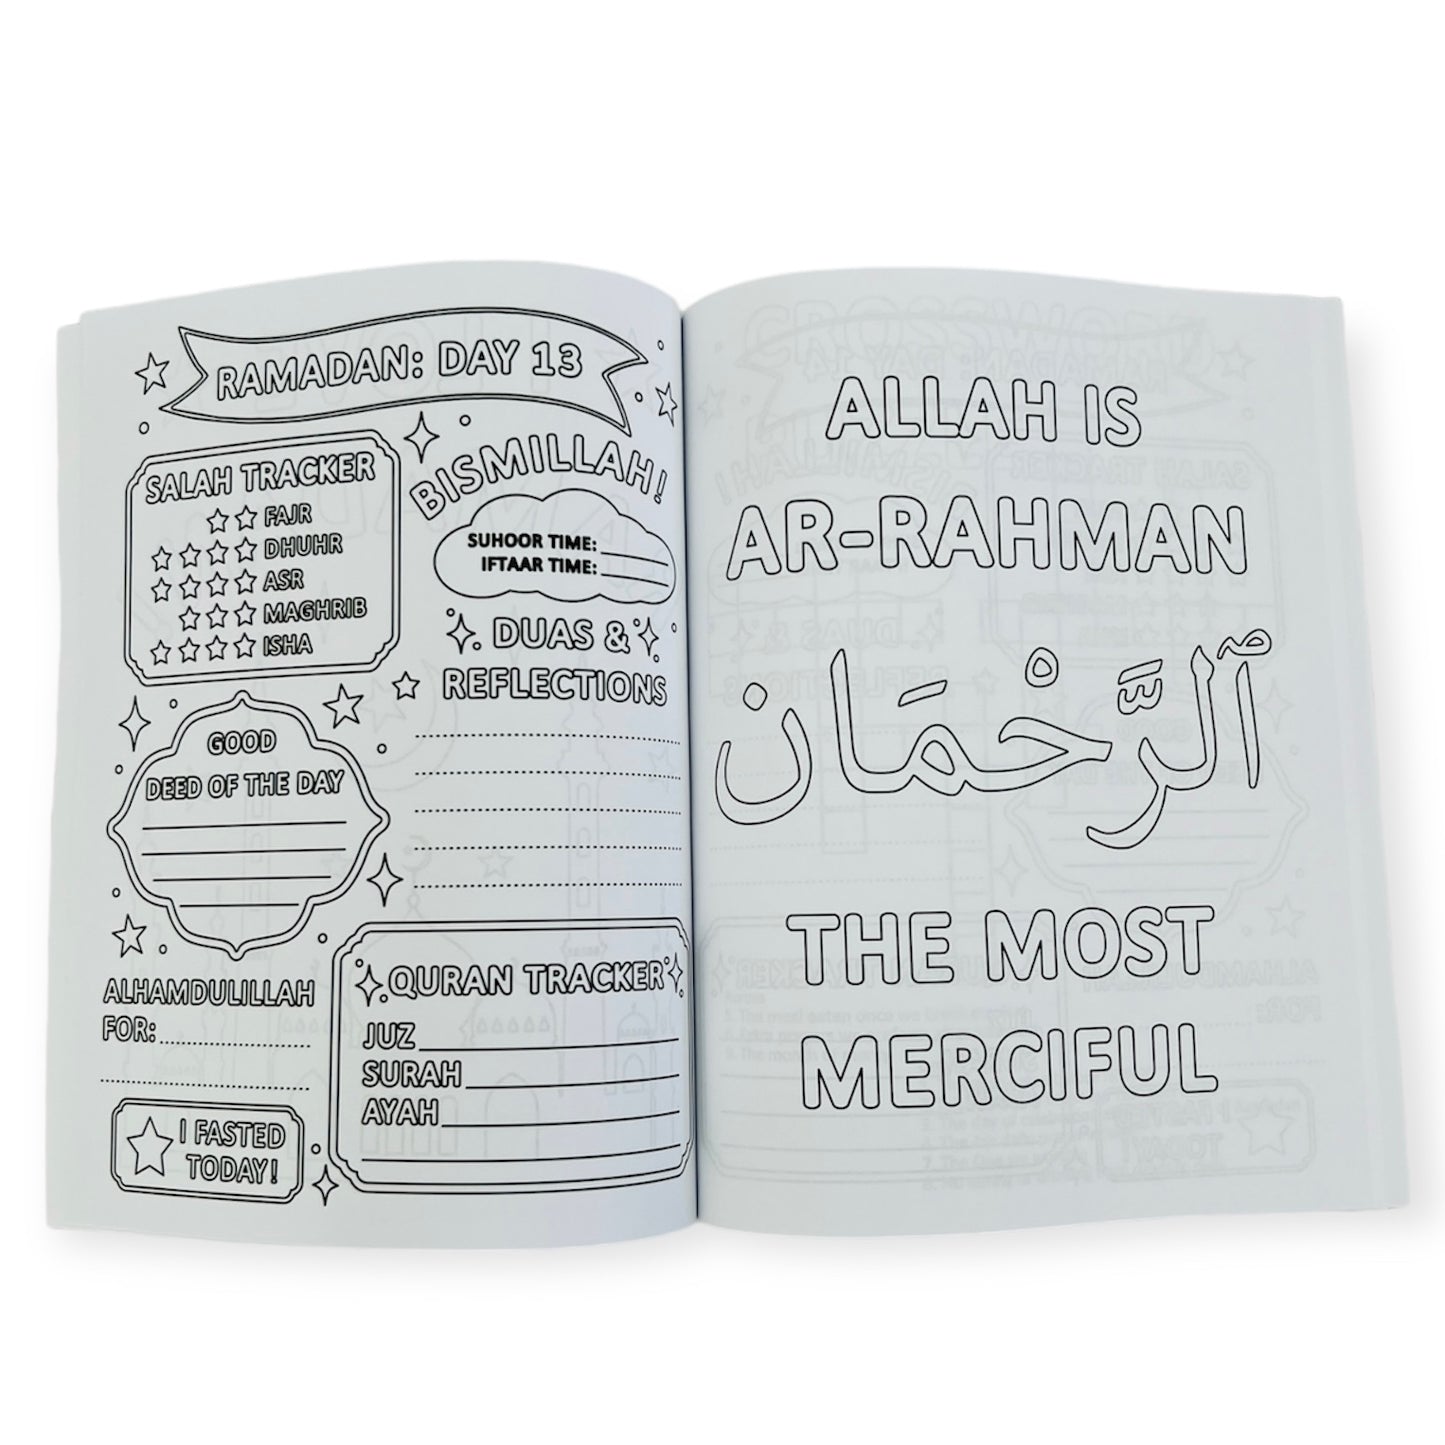 RAMADAN: DAY 13
SALAH TRACKER
FAJR
DHUHR
ASR
MAGHRIB
ISHA
BISMILLAH!
SUHOOR TIME:
IFTAAR TIME:
DUAS &
REFLECTIONS
GOOD
DEED OF THE DAY
ALHAMDULILLAH
FOR:
QURAN TRACKER
JUZ
SURAH
AYAH
I FASTED
TODAY!
ALLAH IS
AR-RAHMAN
ٱلرَّحْمَان
THE MOST
MERCIFUL